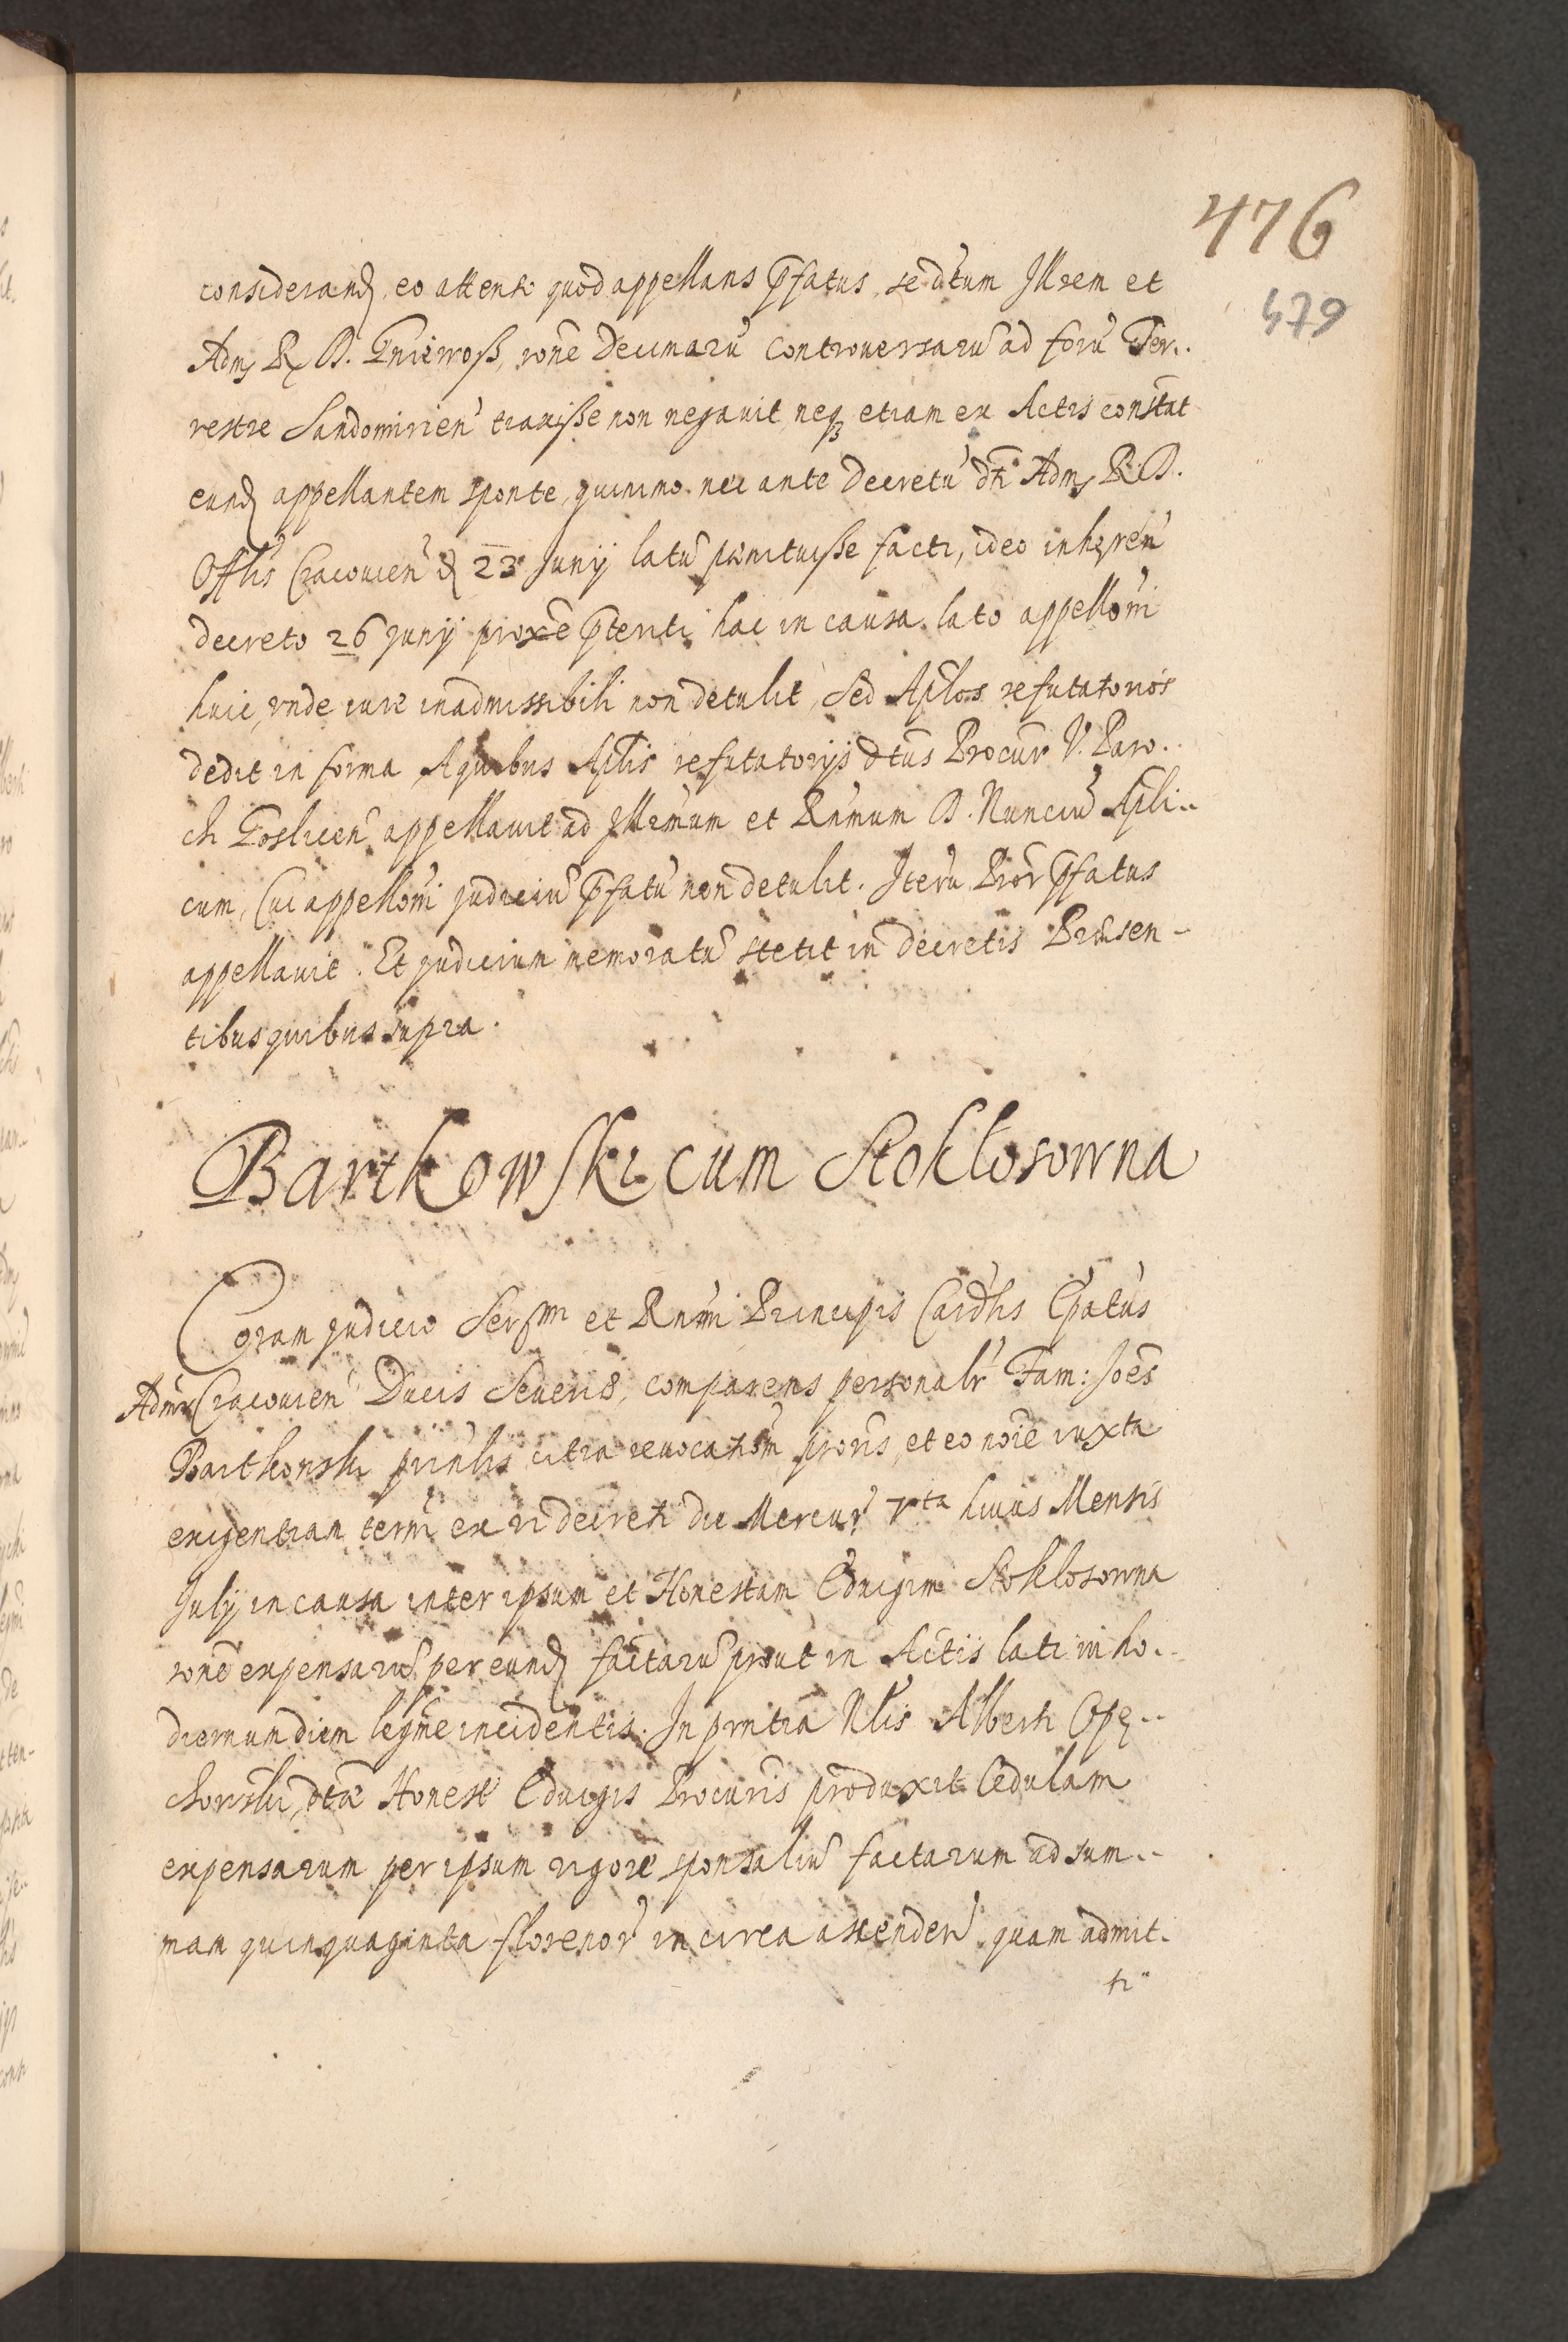 476
479
considerand, eo attento quod appellans p̄fatus, se dctum Illrem et
Adm R D. Gniewosz, rōne Decimarū controuersarū ad forū Ter..
restre Sandomirien̄ traxiſse non negauit, neq3 etiam ex Actis constat
eund appellantem sponte, quinimo nec ante Decretū dti Adm R. D.
Offlis Cracouien̄ d 23 Junij latū pœnituiſse facti, ideo inhæren̄
decreto 26 Junij proxē p̄teriti hac in causa lato appellōni
huic, vnde iure inadmissibili non detulit, Sed Aplos refutatorios
dedit in forma, A quibus Aplis refutatorijs dtus Procur V. Paro..
ch Goslicen̄ appellauit ad Illrmum et Rnmum D. Nunciū Apli..
cum, Cui appellōni Judiciū p̄fatū non detulit. Iterū Pror p̄fatus
appellauit. Et Judicium memoratū stetit in decretis Præsen-
tibus quibus supra.
Bartkowski cum Stoklosowna
Coram Judicio Serſmi et Rnmi Principis Cardlis Epatus
Admr Cracouien̄ Ducis Seueriæ, comparens personalr Fam: Joēs
Bartkowski prinlis citra reuocatōm proris, et eo noīe iuxta
exigentiam termi ex vi decreti die Mercur 7ma huius Mensis
Julij in causa inter ipsum et Honestam Eduigim Stoklosowna
ronē expensarū per eund factarū prout in Actis lati in ho..
diernum diem legme incidentis. In prntia Nlis Alberti Opę..
chowski, dtæ Honest Eduigis Procuris produxit Cedulam
expensarum per ipsum rigore sponsaliū factarum ad sum..
mam quinquaginta florenor in circa ascenden quam admit.
ti"